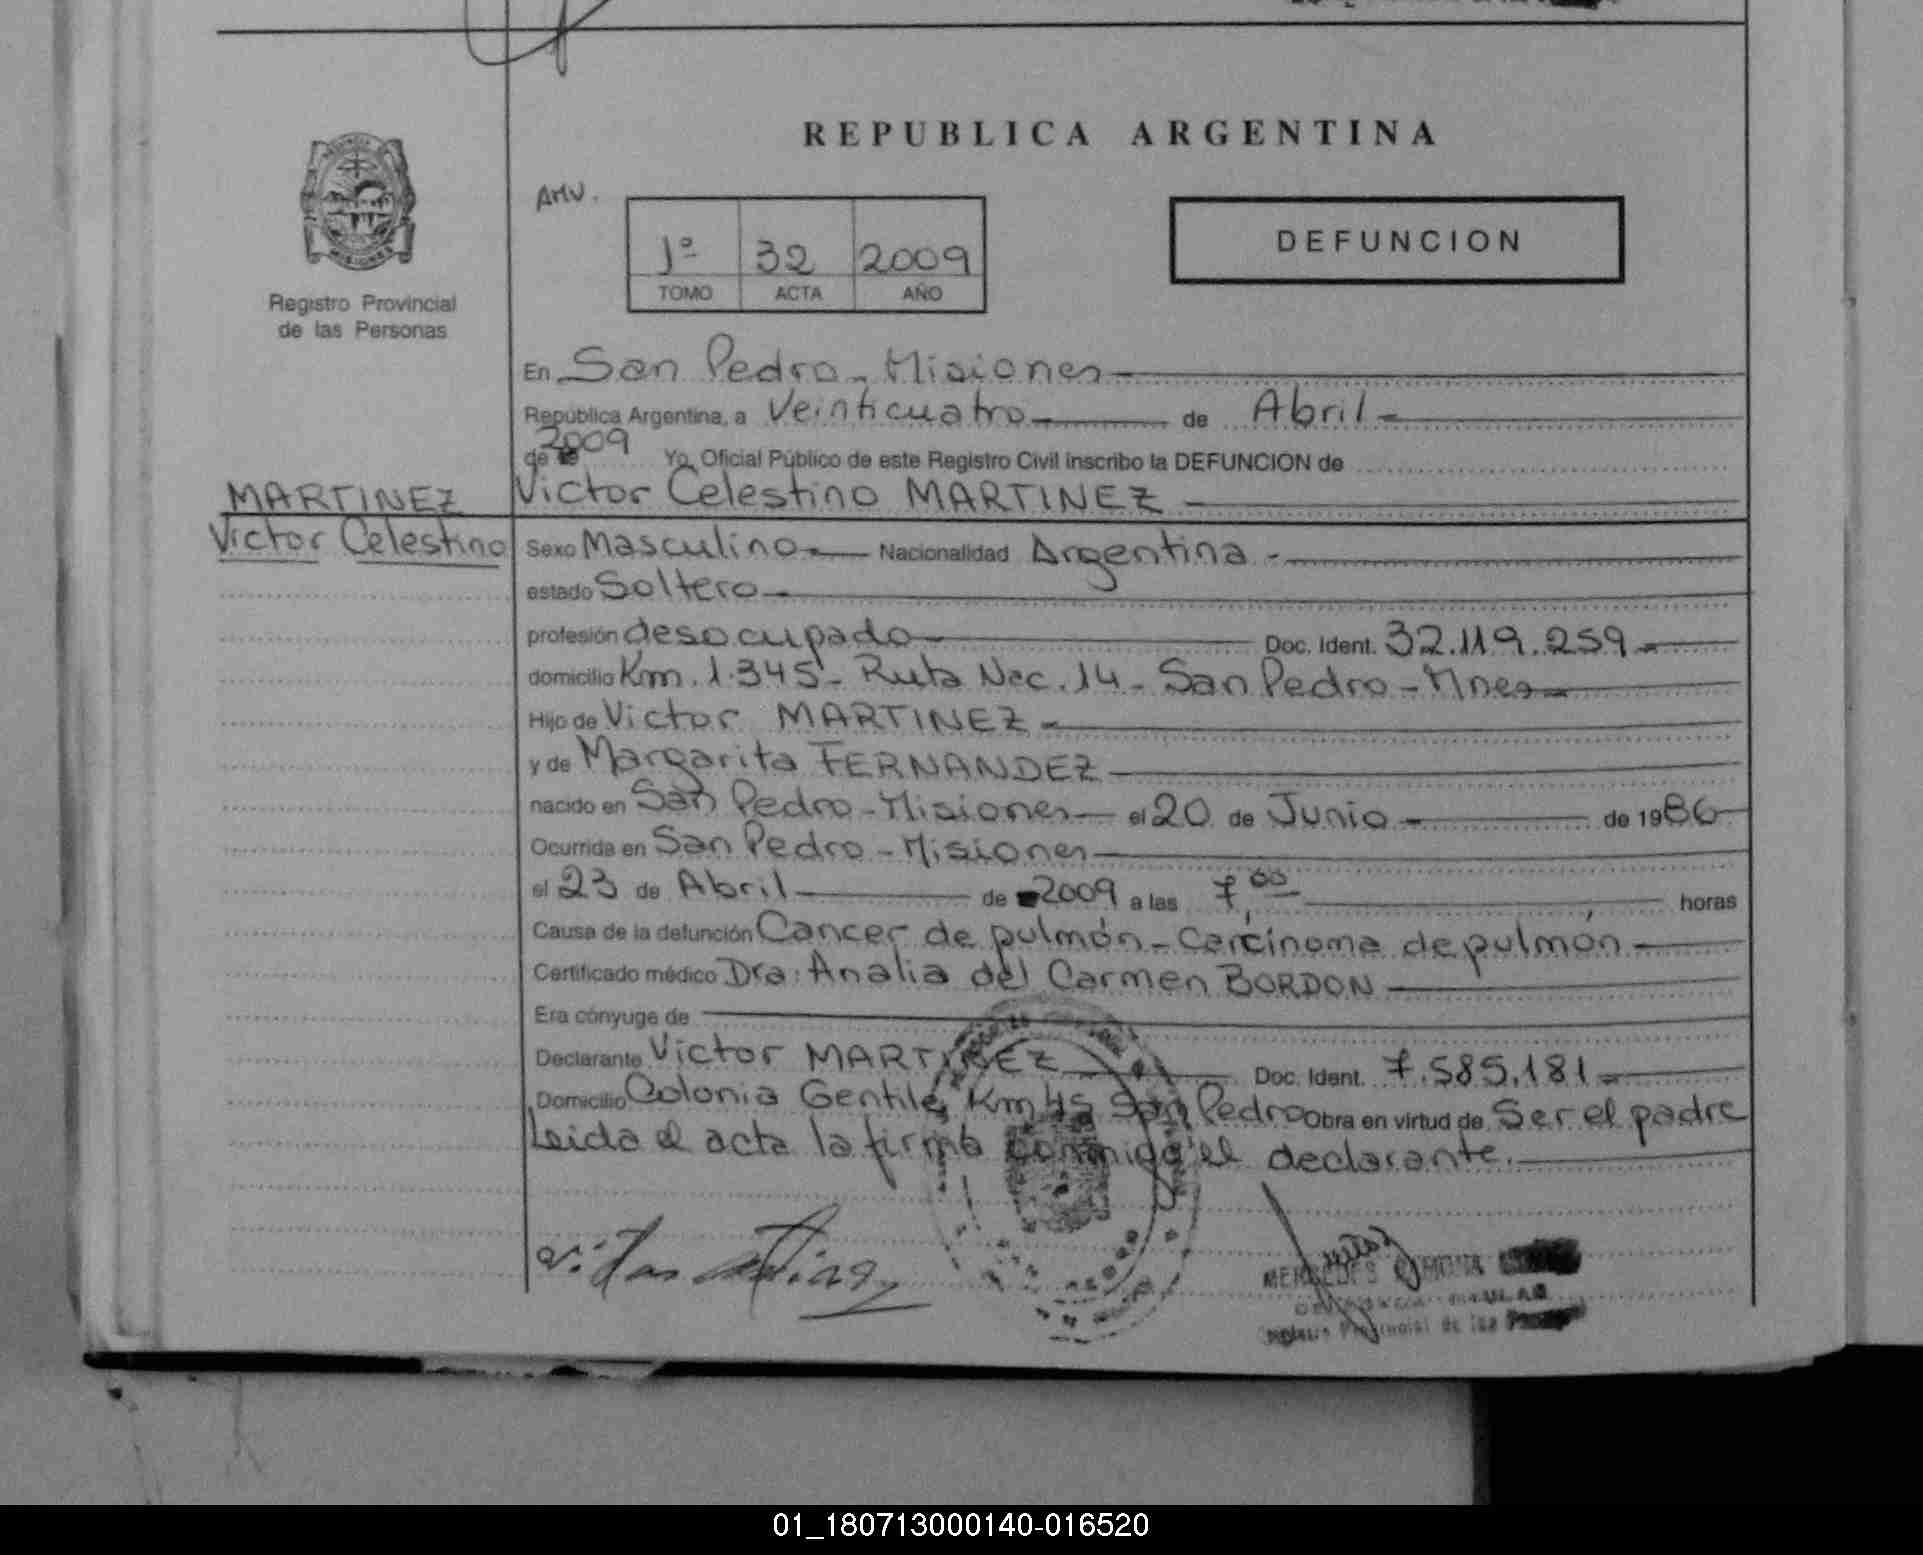 REPUBLICA ARGENTINA
AMV.
1º 32 2009
TOMO ACTA AÑO
DEFUNCION
Registro Provincial
de las Personas
En San Pedro - Misiones
República Argentina, a Veinticuatro de Abril
de 2009 Yo, Oficial Público de este Registro Civil inscribo la DEFUNCION de
MARTINEZ
Victor Celestino
Victor Celestino MARTINEZ
Sexo Masculino Nacionalidad Argentina
estado Soltero
profesión desocupado Doc. Ident. 32.119.259
domicilio Km. 1.345 - Ruta Nac. 14 - San Pedro - Mnes
Hijo de Victor MARTINEZ
y de Margarita FERNANDEZ
nacido en San Pedro - Misiones el 20 de Junio de 1986
Ocurrida en San Pedro - Misiones
el 23 de Abril de 2009 a las 7,00 horas
Causa de la defunción Cancer de pulmón - Carcinoma de pulmón
Certificado médico Dra. Analia del Carmen BORDON
Era cónyuge de
Declarante Victor MARTINEZ Doc. Ident. 7.585.181
Domicilio Colonia Gentile Km 45 San Pedro Obra en virtud de Ser el padre
Leida el acta la firma conmigo el declarante.
MERCEDES
Provincial de las
01_180713000140-016520